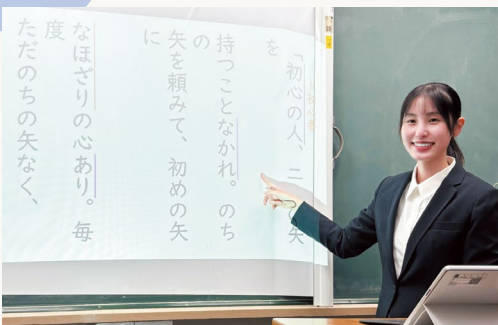 「初心の人、二つの矢
を
持つことなかれ。のち
の
矢を頼みて、初めの矢
に
なほざりの心あり。毎
度
ただのちの矢なく、